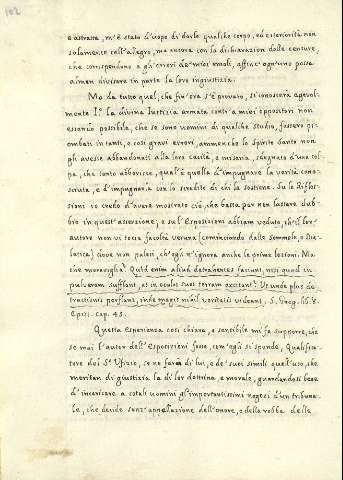 102
e astratta, m'è stato d'uopo di darle qualche corpo, ed esteriorità non
solamente coll'alegro, ma ancora con la dichiarazion delle censure,
che corrispondono a gli errori de' miei emoli, affinc'ogn'uno possa
almen divisare in parte la loro ingiustizia.
Ma da tutto quel, che fin'ora s'è provato, si conoscerà agevol-
mente I.° la divina Iustizia armata contr'a miei oppositori non
essendo possibile, che se sono uomini di qualche studio, fossero pi-
ombati in tanti, e così gravi errori, ammenoche lo Spirito Santo non
gli avesse abbandonati alla loro cecità, e miseria, sdegnato d'una col-
pa, che tanto abborisce, qual'è quella d'impugnare la verità cono-
sciuta, e d'impugnarla con lo scredito di chi la sostiene. Su le Rifles-
sioni io credo d'avere mostrato ciò, che basta per non lasciare dub-
bio in quest'asserzione, e sul'Esposizioni abbiam veduto, ch'il lor'
autore non vi tocca facoltà veruna (cominciando dalle sommole, o Dia-
lettica) dove non palesi, ch'egli n'ignora anche le prime lezioni. Ma
che meraviglia? Quid enim aliud detrahentes faciunt, nisi quod in
pulverem sufflant, ac in oculos suos terram excitant? Ut unde plus de-
tractionis perflant, inde magis nihil veritatis videant. S. Greg. lib. 8.
Epist. cap. 45.
Questa sperienza così chiara, e sensibile mi fa supporre, che
se mai l'autor dell'Esposizioni fosse, com'egli si spende, Qualifica-
tore del S.° Ufizio, se ne farà di lui, e de' suoi simili quell'uso, che
meritan di giustizia la di lor dottrina, e morale, guardandosi bene
d'incaricare a cotali uomini gl'importantissimi negozi d'un tribuna-
le, che decide senz'appellazione dell'onore, e della robba delle